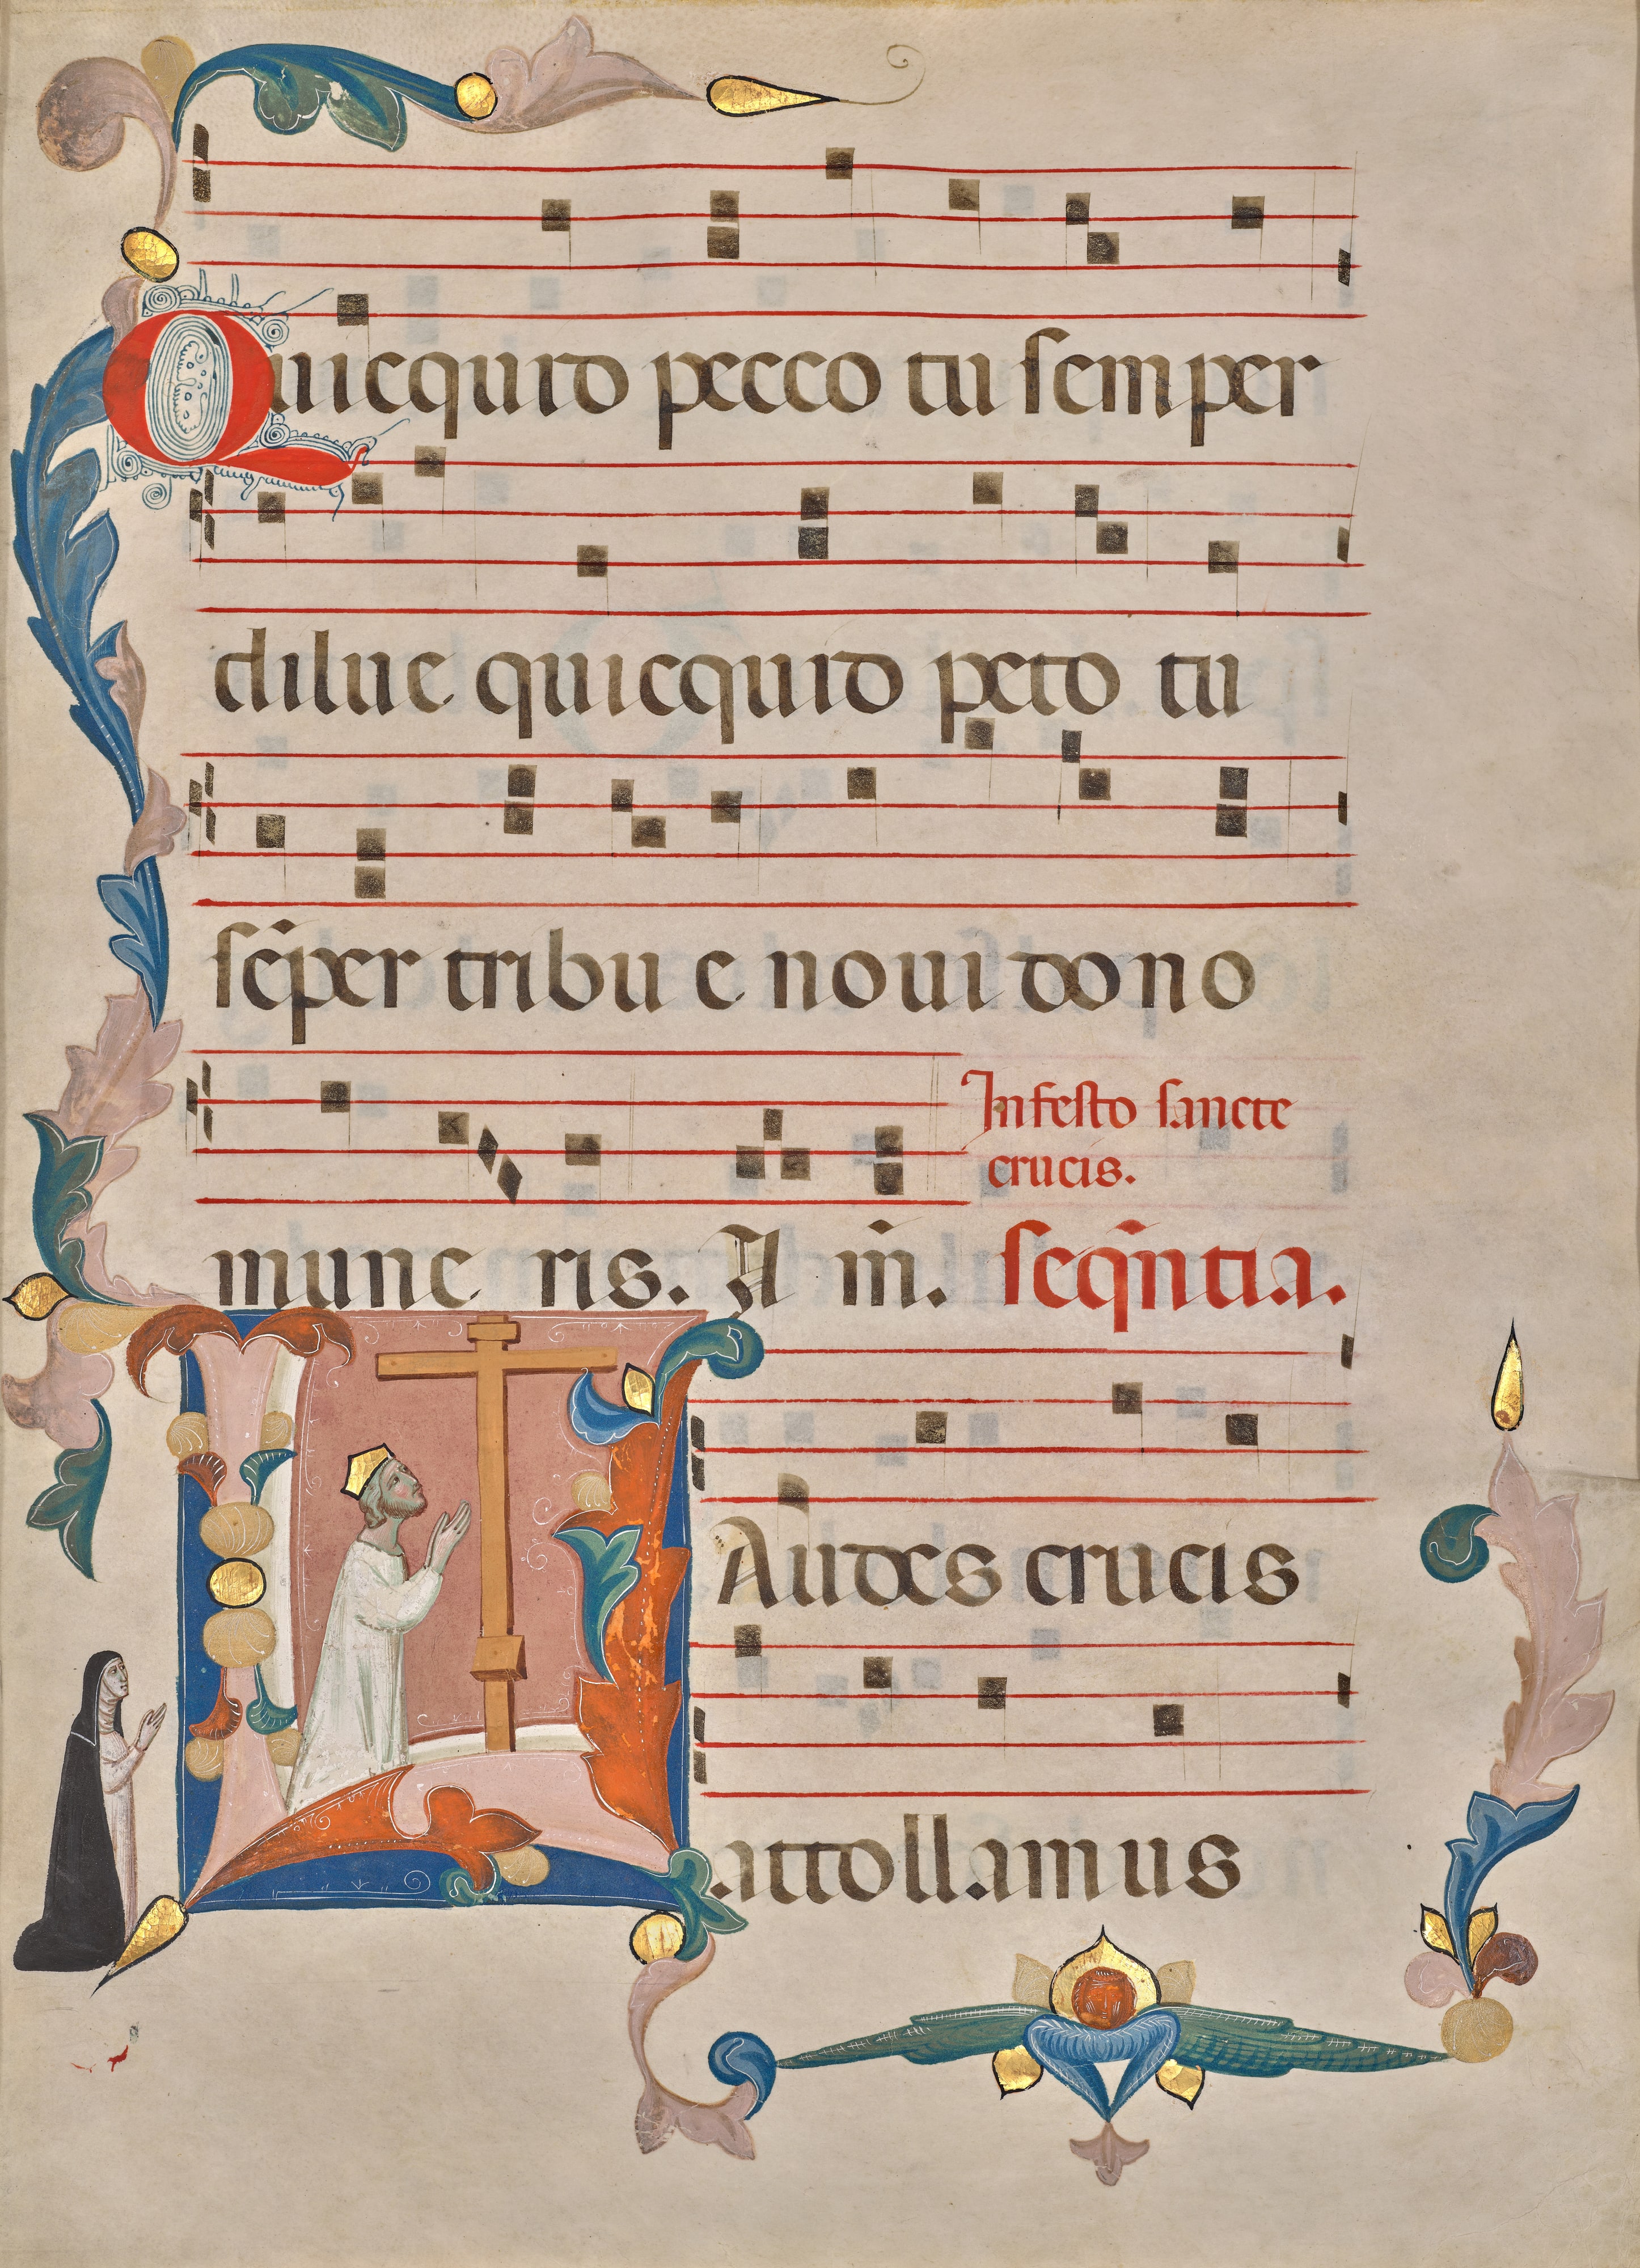 Quicquid pecco tu semper
dilue quicquid peto tu
sēper tribu e noui dono
mune ris. A m̄.
In festo sancte
crucis.
seq̄ntia.
LAudes crucis
attollamus